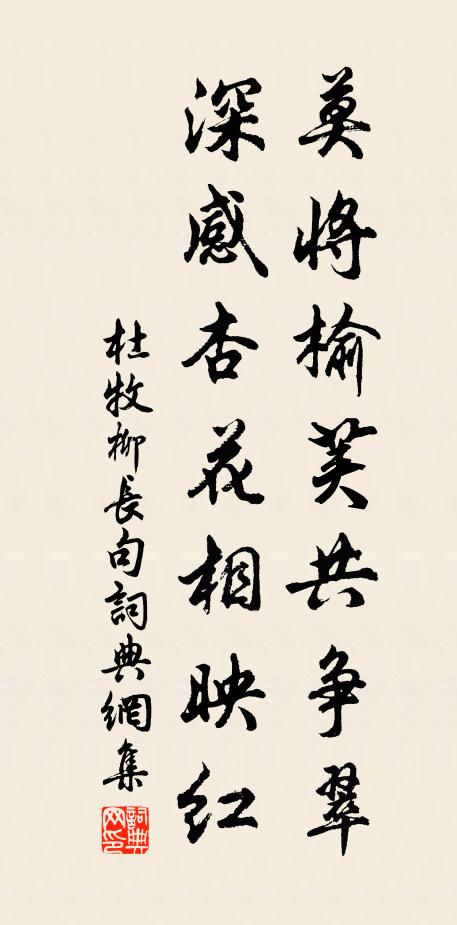 莫將榆荚共争翠
深感杏花相映红
杜牧柳長句詞典網集
詞典网印